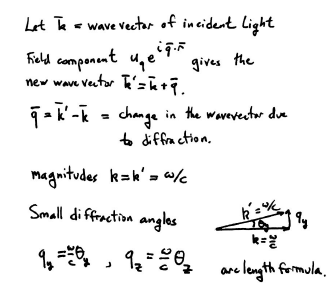 Let k̄ = wavevector of incident light
Field component u_q e^{i q̄·r̄} gives the
new wavevector k̄' = k̄ + q̄.
q̄ = k̄' - k̄ = change in the wavevector due
to diffraction.
magnitudes k = k' = ω/c
Small diffraction angles
k' = ω/c
θ_y
q_y
k = ω/c
q_y = ω/c θ_y , q_z = ω/c θ_z
arc length formula.